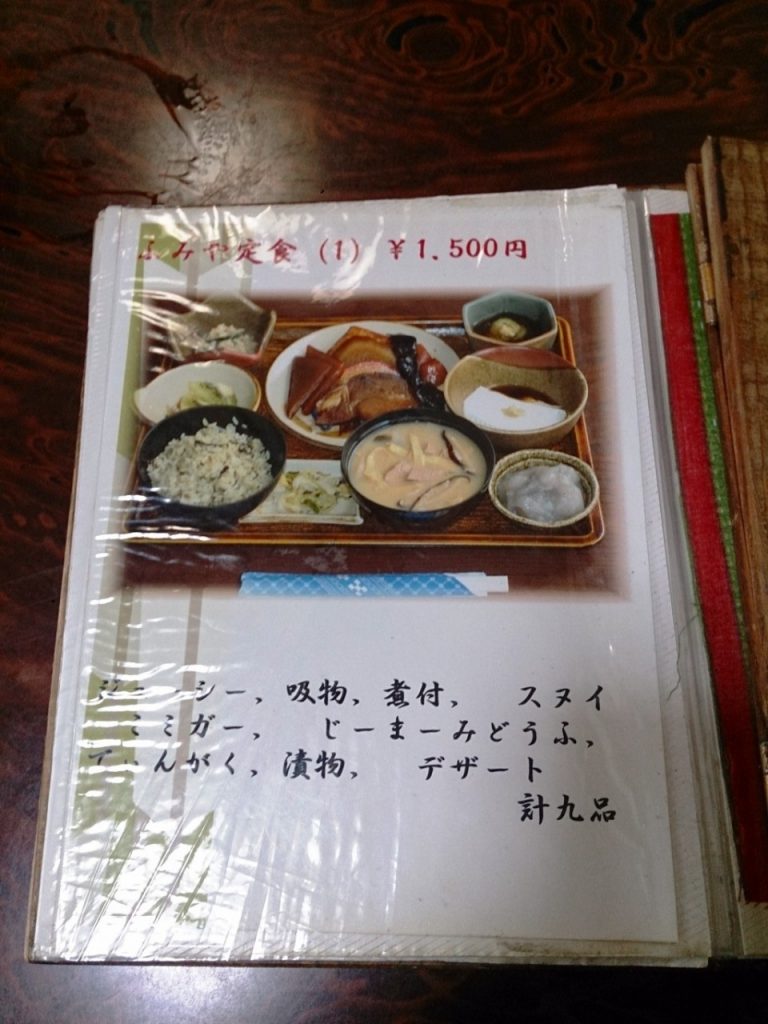 ふみや定食 (1) ￥1,500円
ジューシー, 吸物, 煮付, スヌイ
ミミガー, じーまーみどうふ,
てぃんがく, 漬物, デザート
計九品